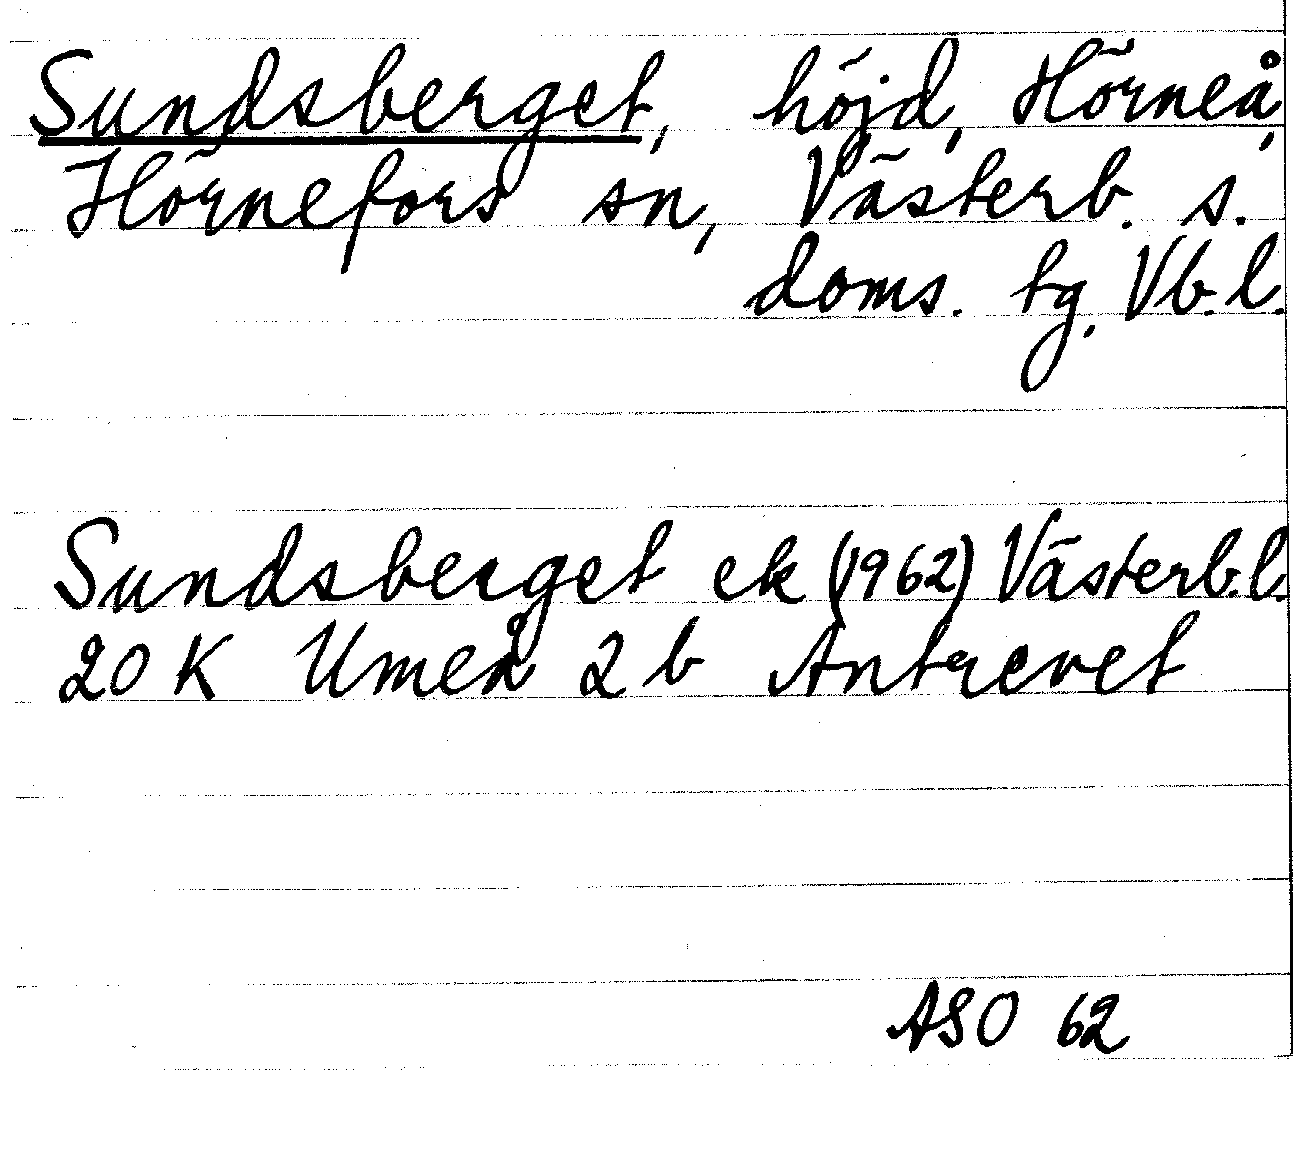 Sundsberget, höjd, Hörneå,
Hörnefors sn, Västerb. s.
doms. tg. Vb. l.
Sundsberget ek (1962) Västerb. l.
20 K Umeå 2 b Antrevet
ASO 62